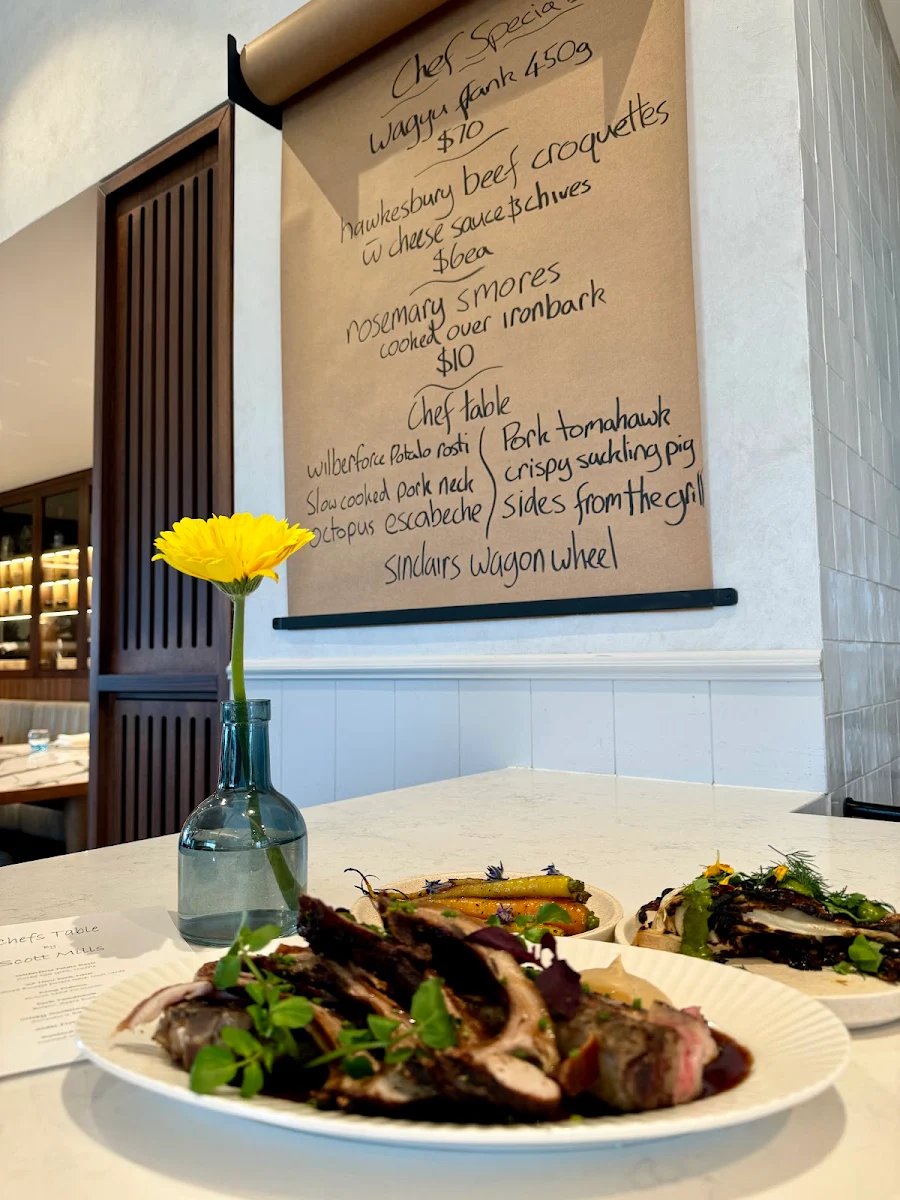 Chef Specials
wagyu flank 450g
$70
hawkesbury beef croquettes
w cheese sauce & chives
$6ea
rosemary smores
cooked over ironbark
$10
Chef table
wilberforce Potato rosti
Slow cooked pork neck
octopus escabeche
Pork tomahawk
crispy suckling pig
sides from the grill
sinclairs wagon wheel
Chefs Table
Scott Mills